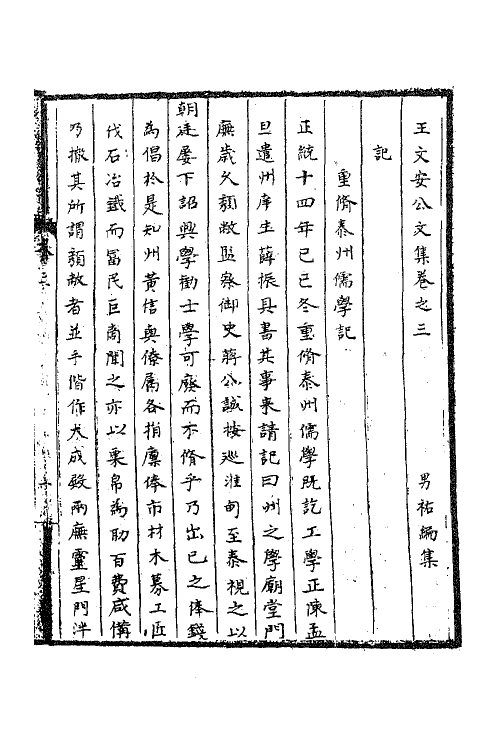 王文安公文集卷之三 男祐編集
記
重脩泰州儒學記
正統十四年己巳冬重脩泰州儒學既訖工學正陳孟
旦遣州庠生薛振具書其事來請記曰州之學廟堂門
廡歲久頹敝監察御史蔣公誠按巡淮甸至泰視之以
朝廷屡下詔興學勸士學可廢而不脩乎乃出己之俸錢
為倡於是知州黃信與僚屬各捐廩俸市材木募工匠
伐石冶鐵而富民巨商聞之亦以粟帛為助百費咸備
乃撤其所謂頹敝者並手偕作大成殿兩廡靈星門泮